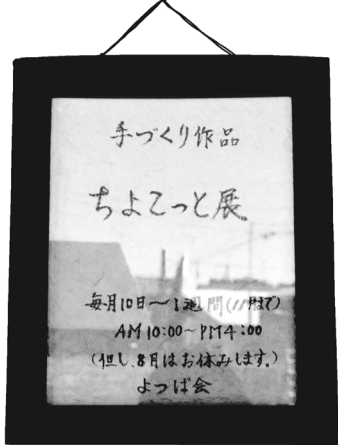 手づくり作品
ちよこっと展
毎月10日〜1週間(11月まで)
AM10:00〜PM4:00
(但し、8月はお休みします。)
よつば会